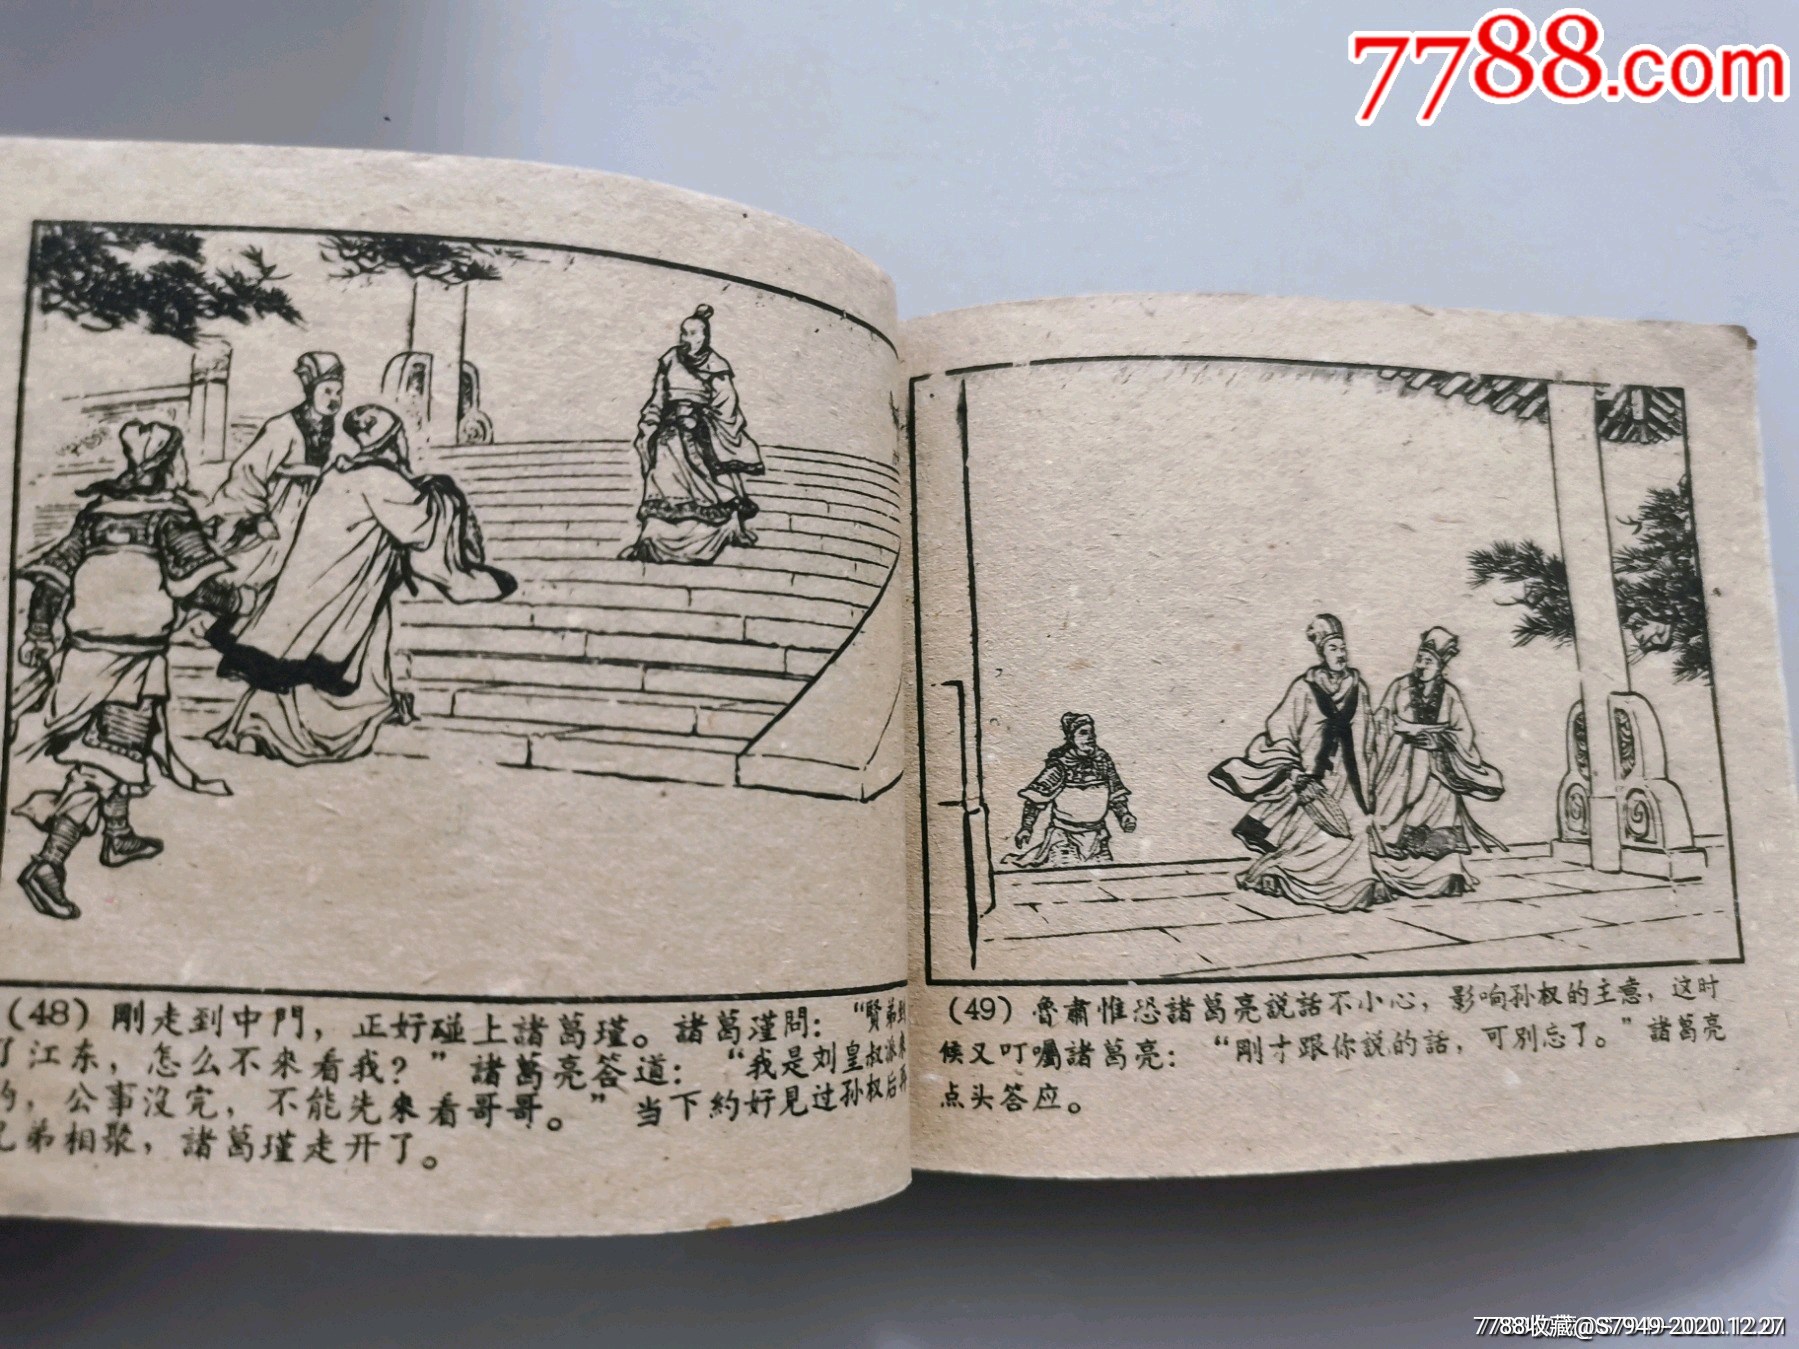 7788.com
(48) 剛走到中門，正好碰上諸葛瑾。諸葛瑾問：“賢弟到
了江东，怎么不來看我？”諸葛亮答道：“我是刘皇叔派来
的，公事沒完，不能先來看哥哥。”当下約好見过孙权后再
兄弟相聚，諸葛瑾走开了。
(49) 魯肅惟恐諸葛亮說話不小心，影响孙权的主意，这时
候又叮囑諸葛亮：“剛才跟你說的話，可別忘了。”諸葛亮
点头答应。
7788收藏@S7949-2020.12.27